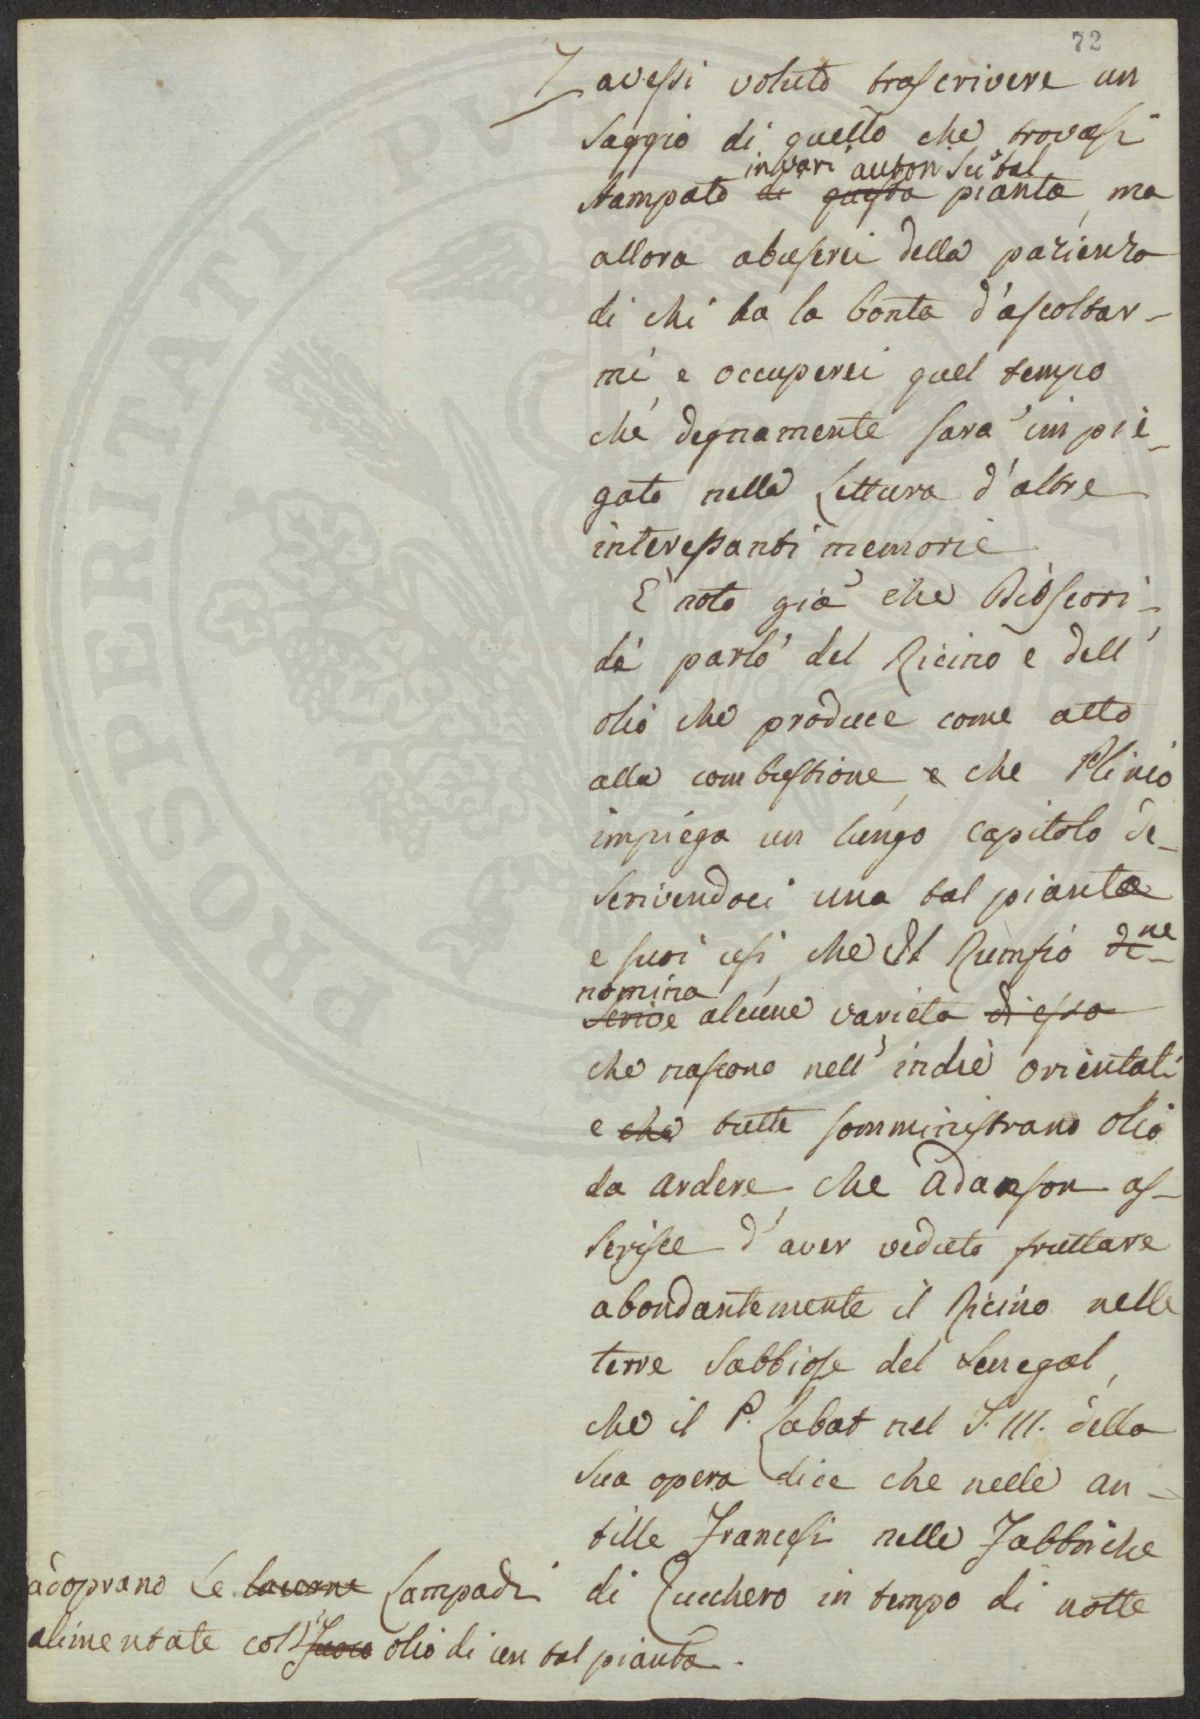 72
avessi voluto trascrivere un
saggio di quello che trovasi
in varj autori su tal
stampato di questa pianta, ma
allora abuserei della pazienza
di chi ha la bontà d'ascoltar-
mi e occuperei quel tempo
che degnamente sarà impie-
gato nella Lettura d'altre
interessanti memorie
È noto già che Dioscori-
de parlò del Ricino e dell'
olio che produce come atto
alla combustione, e che Plinio
impiega un lungo capitolo de-
scrivendoci una tal pianta
e suoi usi, che il Rumfio ne
nomina
alcune varietà di essa
che nascono nell'indie orientali
e che tutte somministrano olio
da ardere, che Adanson as-
serisce d'aver veduto fruttare
abondantemente il Ricino nelle
terre sabbiose del Senegal,
che il P. Labat nel T. III. della
sua opera dice che nelle an-
tille Francesi nelle Fabbriche
di Zucchero in tempo di notte
adoprano le lucerne Lampadi
alimentate coll'suoco olio di un tal pianta.
PROSPERITATI PUB